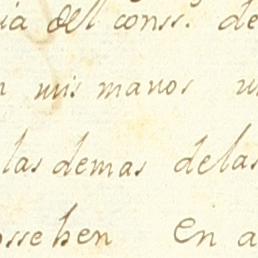 ia del conss. de
mis manos
las demas delas
ossehen En a